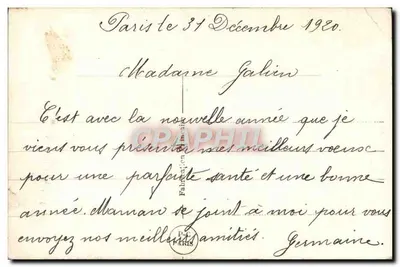 Paris le 31 Décembre 1920.
Madame Galien
C'est avec la nouvelle année que je
viens vous présenter mes meilleurs voeux
pour une parfaite santé et une bonne
année. Maman se joint à moi pour vous
envoyez nos meilleurs amitiés. Germaine.
CPAPHIL